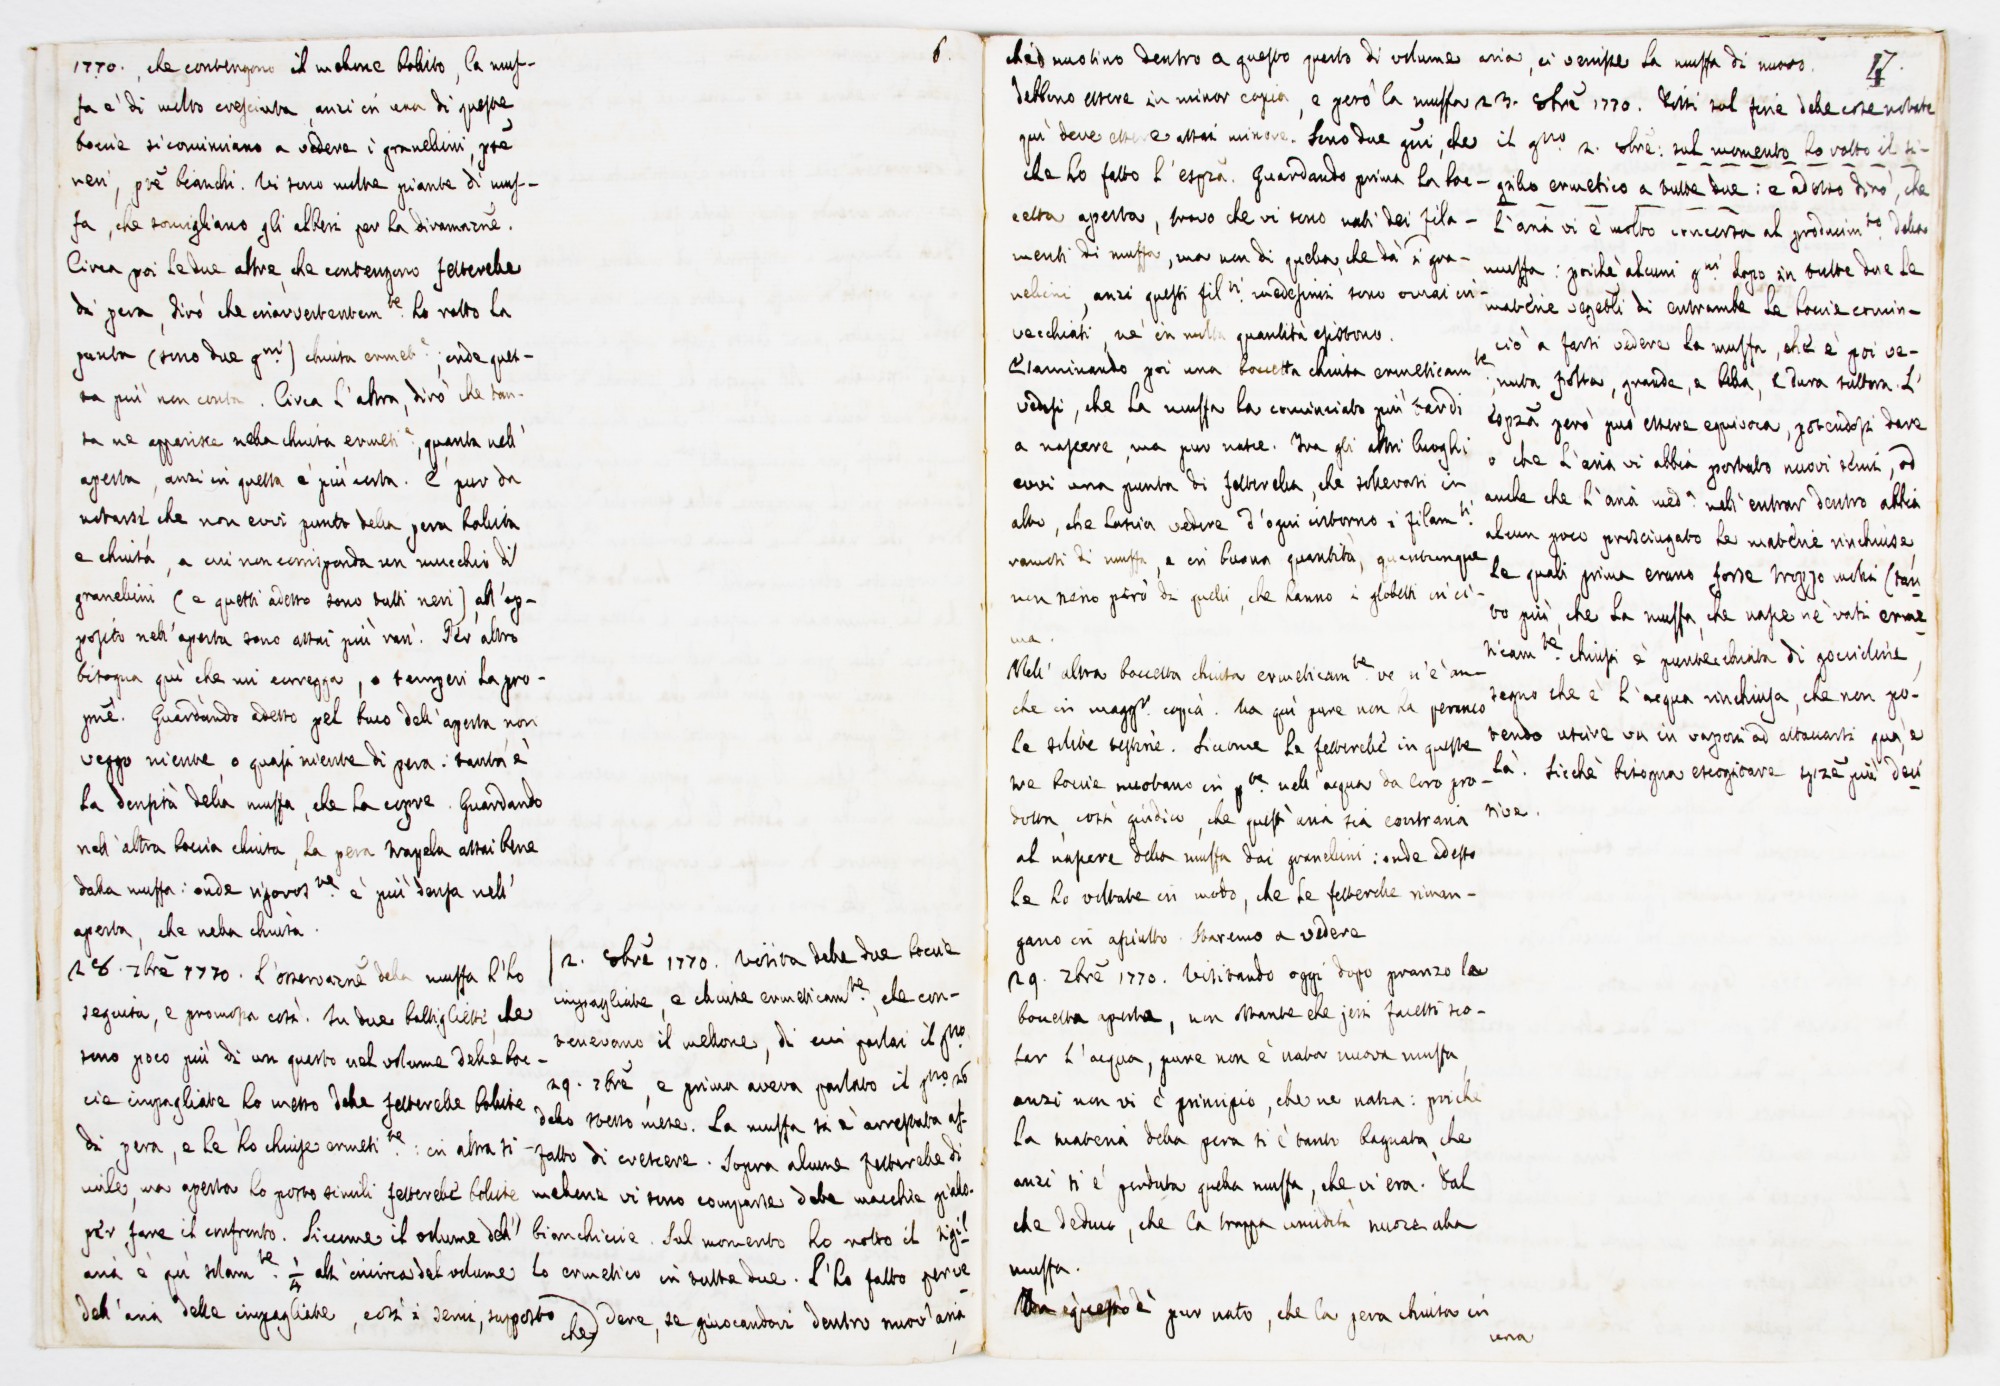 6.
1770., che contengono il melone bollito, la muf-
fa è di molto cresciuta, anzi in una di queste
boccie si cominciano a vedere i granellini, prē
neri, prē bianchi. Vi sono molte piante di muf-
fa, che somigliano gli alberi per la diramaznē.
Circa poi le due altre, che contengono fetterelle
di pera, dirò che inavvertentem.te ho rotto la
punta (sono due g.ni) chiusa ermet.e; onde ques-
ta più non conta. Circa l'altra, dirò che tan-
ta ne apparisce nella chiusa ermeti.e, quanta nell'
aperta, anzi in quella è più certa. È pur da
notarsi che non evvi punto della pera bollita
e chiusa, a cui non corrisponda un mucchio di
granellini (e questi adesso sono tutti neri) all'op-
posito nell'aperta sono assai più rari. Per altro
bisogna quì che mi corregga, o temperi la pro-
pnē. Guardando adesso pel buco dell'aperta non
veggo niente, o quasi niente di pera: tanta è
la densità della muffa, che la copre. Guardando
nell'altra boccia chiusa, la pera trapela assai bene
dalla muffa: onde rigoros.te è più densa nell'
aperta, che nella chiusa.
28. 7brē 1770. L'osservaznē della muffa l'ho
seguita, e promossa così. In due bottigliette, che
sono poco più di un quarto nel volume delle boc-
cie impagliate ho messo delle fetterelle bollite
di pera, e le ho chiuse ermeti.te: in altra si-
mile, ma aperta ho posto simili fetterelle bollite
per fare il confronto. Siccome il volume dell'
aria è quì solam.te 1/4 all'incirca del volume
dell'aria delle impagliate, così i semi, supposto
che
2. 8brē 1770. Visita delle due boccie
impagliate, e chiuse ermeticam.te, che con-
tenevano il mellone, di cui parlai il g.no
29. 7brē, e prima aveva parlato il g.no 26
dello stesso mese. La muffa si è arrestata af-
fatto di crescere. Sopra alcune fetterelle di
mellone vi sono comparse delle macchie giallo-
bianchiccie. Sul momento ho rotto il sigil-
lo ermetico in tutte due. L'ho fatto per ve-
dere, se giuocandovi dentro nuov'aria
17.
che nuotino dentro a questo quarto di volume
debbono essere in minor copia, e però la muffa
quì deve essere assai minore. Sono due gni, che
che ho fatto l'esprā. Guardando prima la boc-
cetta aperta, trovo che vi sono nati dei fila-
menti di muffa, ma non di quella, che dà i gra-
nellini, anzi questi fil.ti medesimi sono omai in-
vecchiati, nè in molta quantità esistono.
Esaminando poi una boccetta chiusa ermeticam.te
vedesi, che la muffa ha cominciato più tardi
a nascere, ma pur nasce. Tra gli altri luoghi
evvi una punta di fetterella, che sollevasi in
alto, che lascia vedere d'ogni intorno i filam.ti
ramosi di muffa, e in buona quantità, quantunque
non sieno però di quelli, che hanno i globetti in ci-
ma.
Nell'altra boccetta chiusa ermeticam.te ve n'è an-
che in magg.r copia. Ma quì pure non ha peranco
le solite testine. Siccome le fetterelle in queste
tre boccie nuotano in p.te nell'acqua da loro pro-
dotta, così giudico, che quest'aria sia contraria
al nascere della muffa dai granellini: onde adesso
le ho voltate in modo, che le fetterelle riman-
gano in asciutto. Staremo a vedere
29. 7brē 1770. Visitando oggi dopo pranzo la
boccetta aperta, non ostante che jeri facessi sco-
lar l'acqua, pure non è nata nuova muffa,
anzi non vi è principio, che ne nasca: poichè
la materia della pera si è tanto bagnata, che
anzi si è perduta quella muffa, che vi era. Dal
che deduco, che la troppa umidità nuoce alla
muffa.
è pur nato, che la pera chiusa in
una
aria, ci venisse la muffa di nuovo.
23. 8brē 1770. Dissi sul fine delle cose notate
il g.no 2. 8brē: sul momento ho rotto il si-
gillo ermetico a tutte due: e adesso dirò, che
l'aria vi è molto concorsa al producim.to della
muffa: poichè alcuni g.ni dopo in tutte due le
materie vegetbli di entrambe le boccie comin-
ciò a farsi vedere la muffa, che è poi ve-
nuta folta, grande, e bella, e dura tuttora. L'
esprzā però può essere equivoca, potendosi dare
o che l'aria vi abbia portato nuovi semi, od
anche che l'aria med.a nell'entrar dentro abbia
alcun poco prosciugato le materie rinchiuse,
le quali prima erano forse troppo molli (tan-
to più, che la muffa, che nasce ne' vasi erme-
ticam.te chiusi è puntecchiata di goccioline,
segno che è l'acqua rinchiusa, che non po-
tendo uscire va in vapori ad attaccarsi quà, e
là. Sicchè bisogna escogitare sprzē più deci-
sive.